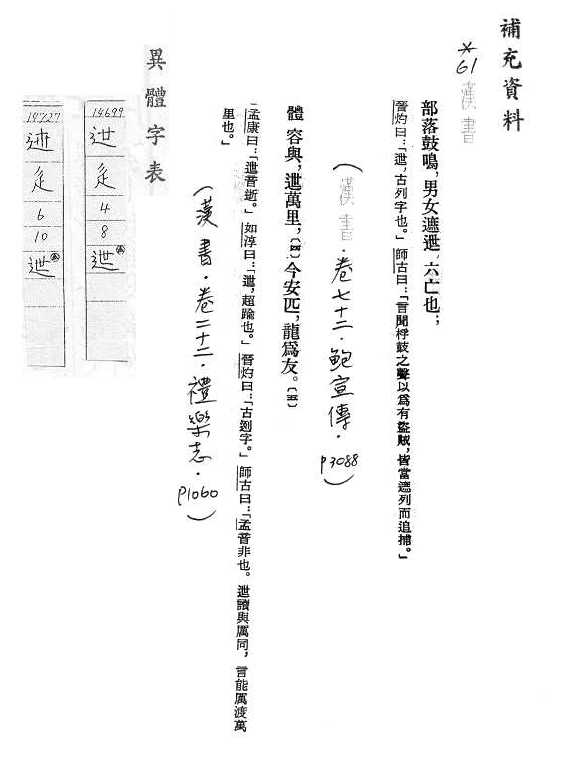 補充資料
*61 漢書
部落鼓鳴,男女遮迣,六亡也;
晉灼曰:「迣,古列字也。」師古曰:「言聞桴鼓之聲以為有盜賊,皆當遮列而追捕。」
(漢書.卷七十二.鮑宣傳.p3088)
體容與,迣萬里,〔四〕今安匹,龍爲友。〔五〕
孟康曰:「迣音逝。」如淳曰:「迣,超踰也。」晉灼曰:「古迾字。」師古曰:「孟音非也。迣讀與厲同,言能厲渡萬
里也。」
(漢書.卷二十二.禮樂志.p1060)
異體字表
14699
迣
辵
4
8
迣
14727
辵
6
10
迣